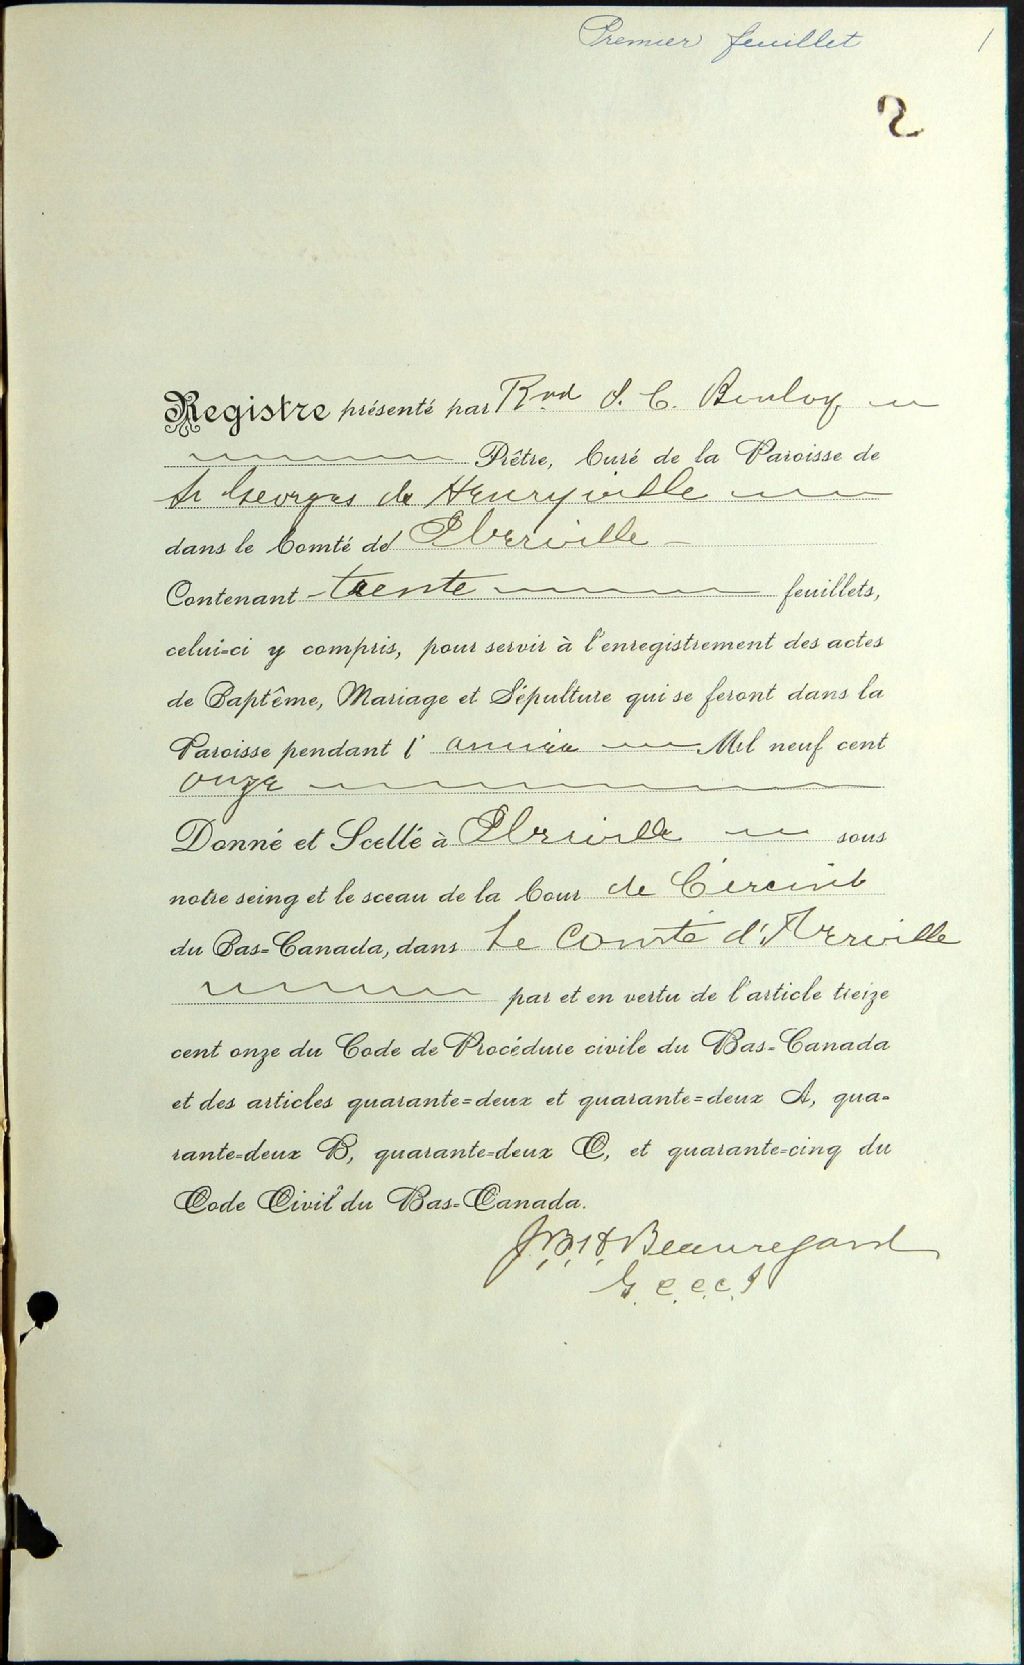 Premier feuillet 1
2
Registre présenté par Rvd S. C.
Prêtre, Curé de la Paroisse de
St Georges de Henryville
dans le Comté de Iberville
Contenant trente feuillets,
celui-ci y compris, pour servir à l'enregistrement des actes
de Baptême, Mariage et Sépulture qui se feront dans la
Paroisse pendant l'année Mil neuf cent
onze
Donné et Scellé à Iberville sous
notre seing et le sceau de la Cour de Circuit
du Bas-Canada, dans Le Comté d'Iberville
par et en vertu de l'article treize
cent onze du Code de Procédure civile du Bas-Canada
et des articles quarante-deux et quarante-deux A, qua-
rante-deux B, quarante-deux C, et quarante-cinq du
Code Civil du Bas-Canada.
Beauregard
G. C. C. C. I